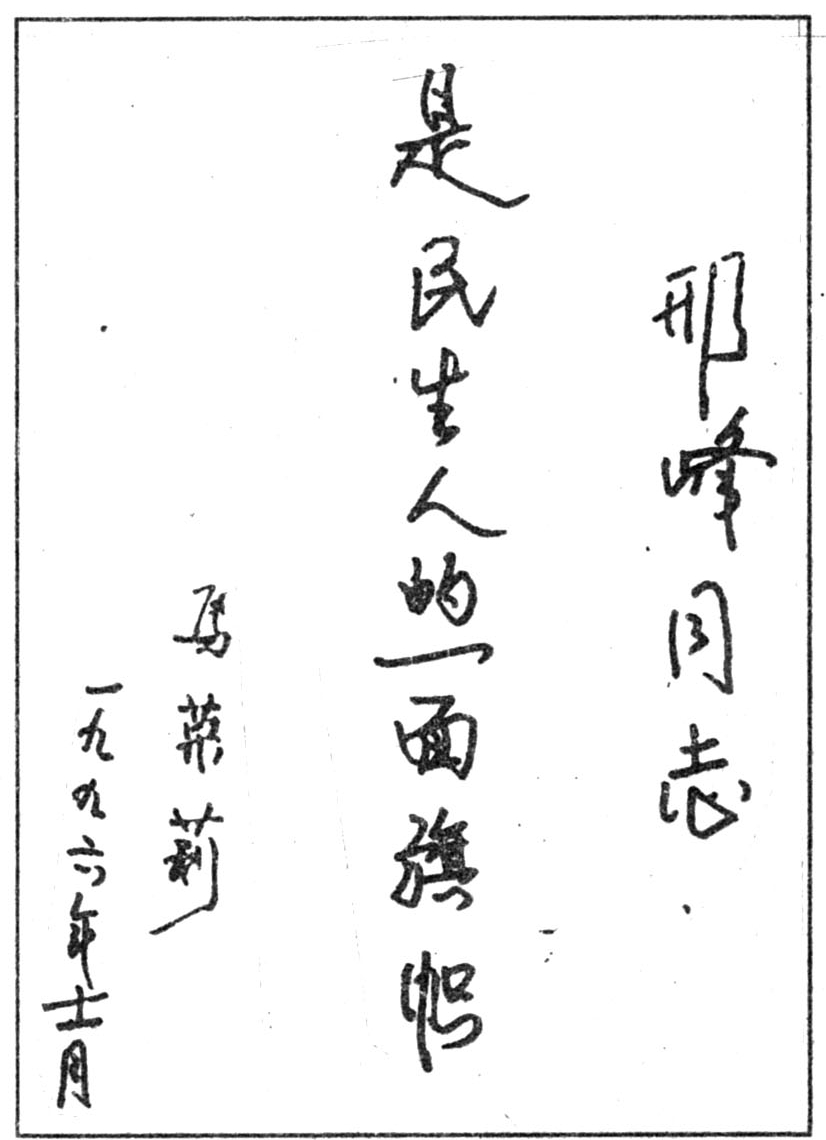 邢峰同志
是民生人的一面旗帜
馬蕖莉
一九九六年十一月